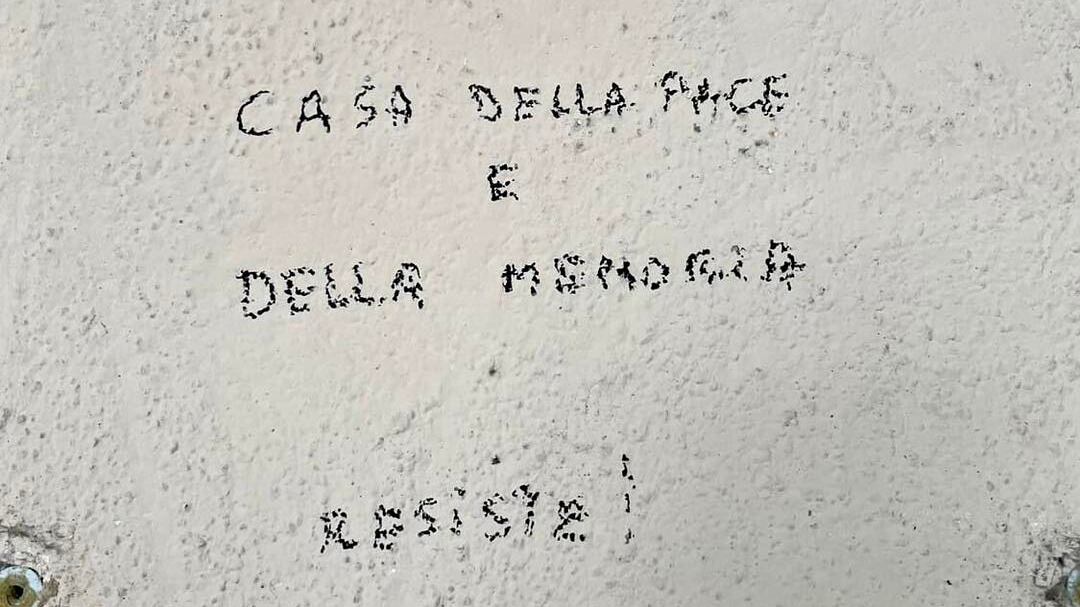 CASA DELLA PACE
E
DELLA MEMORIA
RESiSTE!